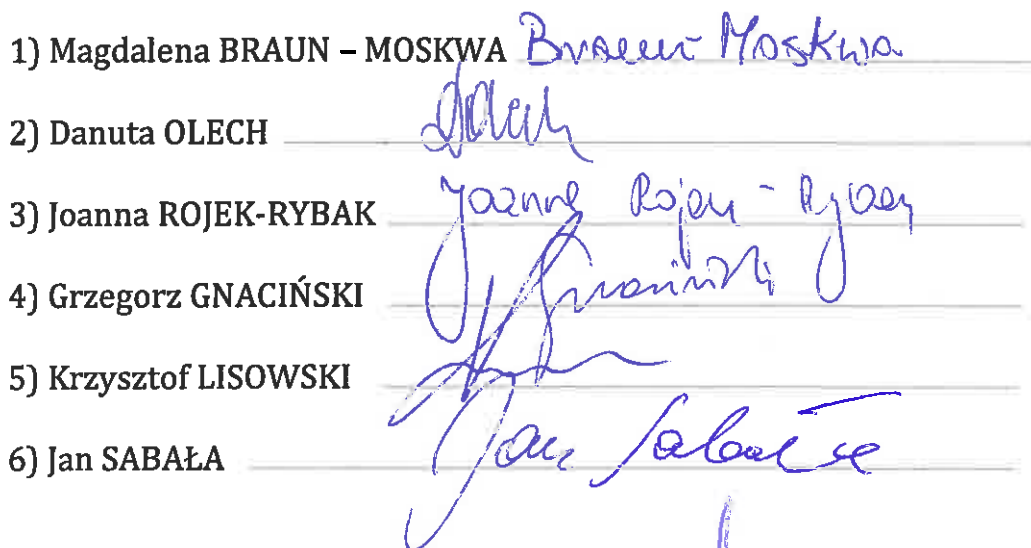 1) Magdalena BRAUN – MOSKWA Braun Moskwa
2) Danuta OLECH
3) Joanna ROJEK-RYBAK Joanna Rojek - Rybak
4) Grzegorz GNACIŃSKI Gnaciński
5) Krzysztof LISOWSKI
6) Jan SABAŁA Jan Sabała